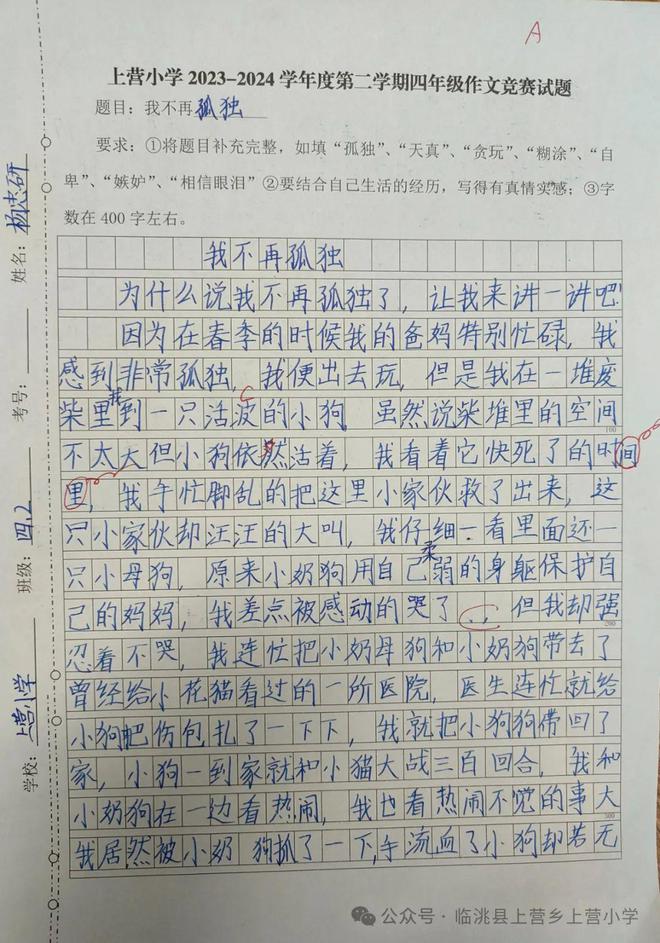 A
上营小学2023-2024学年度第二学期四年级作文竞赛试题
题目：我不再孤独
要求：①将题目补充完整，如填“孤独”、“天真”、“贪玩”、“糊涂”、“自
卑”、“嫉妒”、“相信眼泪”②要结合自己生活的经历，写得有真情实感；③字
数在400字左右。
学校：上营小学 班级：四.2 考号： 姓名：杨志研
我不再孤独
为什么说我不再孤独了，让我来讲一讲吧！
因为在春季的时候我的爸妈特别忙碌，我
感到非常孤独，我便出去玩，但是我在一堆废
柴里我到一只活波的小狗 虽然说柴堆里的空间
100
不太大但小狗依然活着，我看着它快死了的时间
里，我手忙脚乱的把这里小家伙救了出来，这
只小家伙却汪汪的大叫，我仔细一看里面还一
只小母狗，原来小奶狗用自己柔弱的身躯保护自
己的妈妈，我差点被感动的哭了，但我却强
200
忍着不哭，我连忙把小奶母狗和小奶狗带去了
曾经给小花猫看过的一所医院，医生连忙就给
小狗把伤包扎了一下下，我就把小狗狗带回了
家，小狗一到家就和小猫大战三百回合，我和
小奶狗在一边看热闹，我也看热闹不觉的事大
300
我居然被小奶狗抓了一下，手流血了小狗却若无
公众号·临洮县上营乡上营小学